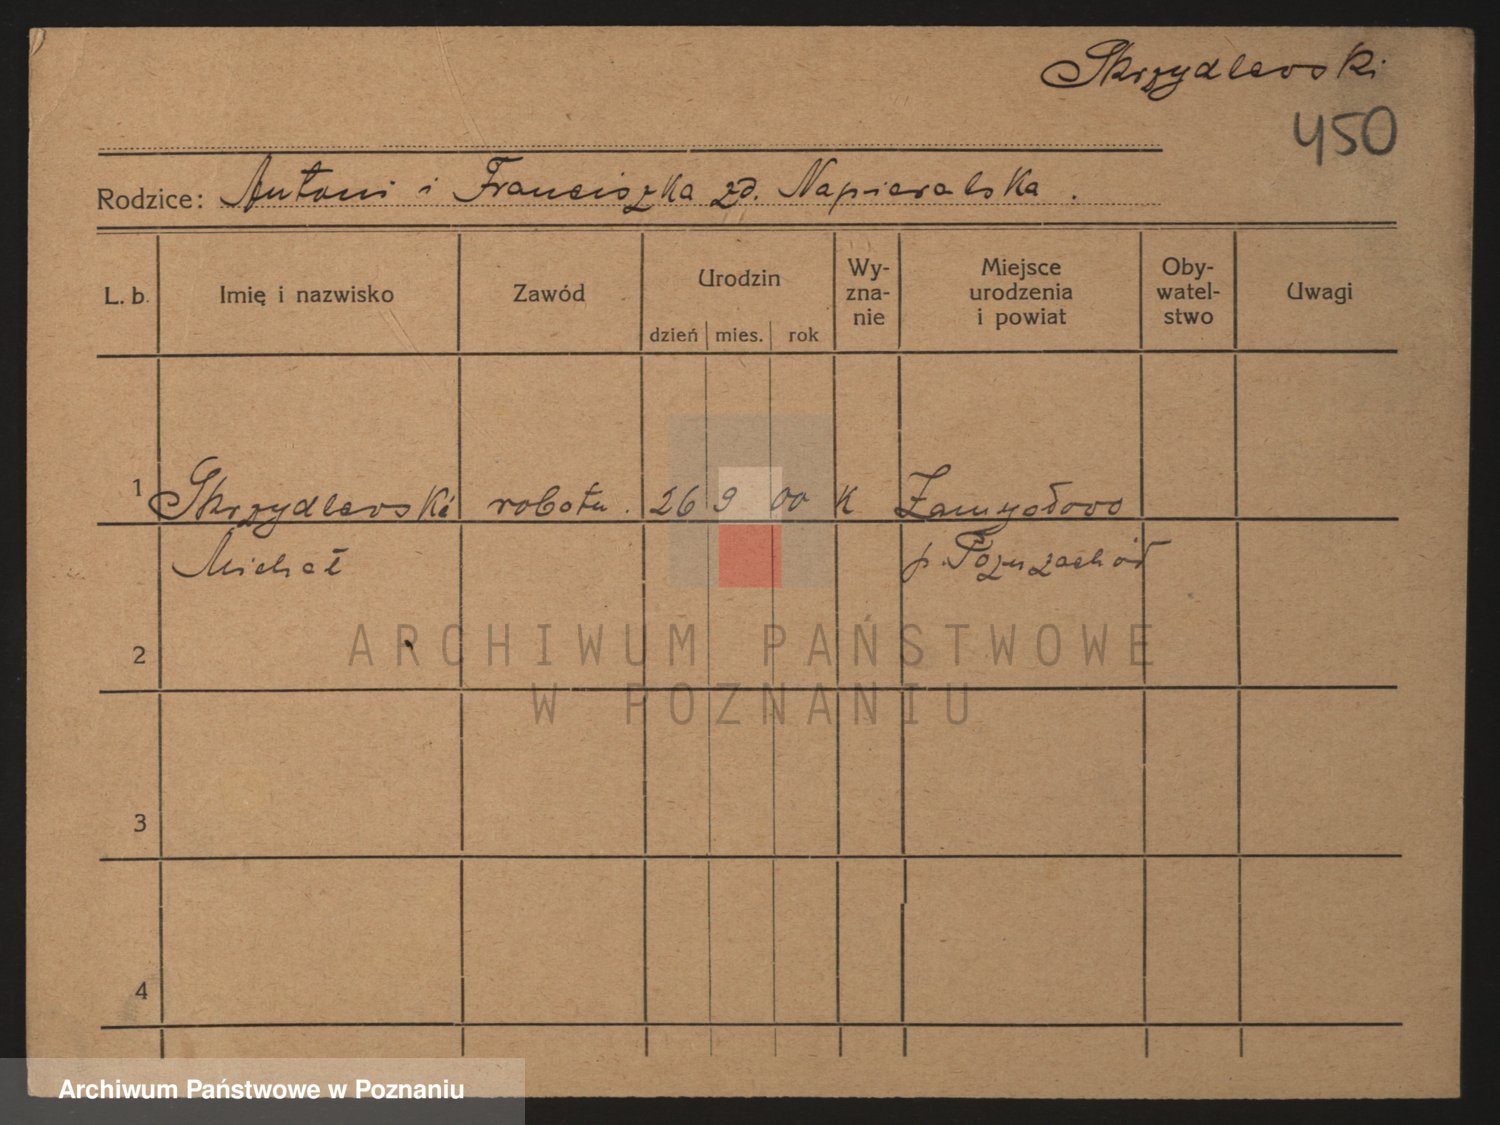 Skrzydlewski
450
Rodzice: Antoni i Franciszka zd. Napieralska.
L. b. Imię i nazwisko Zawód Urodzin Wy- Miejsce Oby- Uwagi
zna- urodzenia watel-
nie i powiat stwo
dzień mies. rok
1 Skrzydlewski robotn. 26 9 00 K Zamysłowo
Michał p. Pozn. zachód
2
ARCHIWUM PAŃSTWOWE
W POZNANIU
3
4
Archiwum Państwowe w Poznaniu